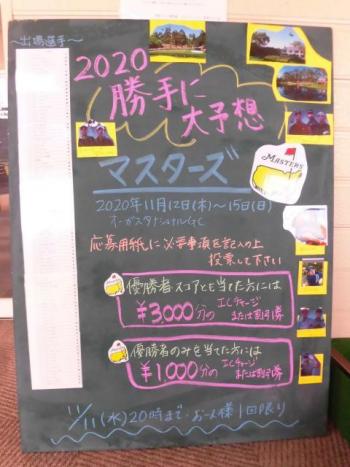 ～出場選手～
2020
勝手に
大予想
マスターズ
MASTERS
2020年11月12日(木)～15日(日)
オーガスタナショナルGC
応募用紙に必要事項を記入の上
投票して下さい
優勝者スコアとも当てた方には
¥3,000分の ICチャージ
または割引券
優勝者のみを当てた方には
¥1,000分の ICチャージ
または割引券
11/11(水)20時まで・お一人様1回限り